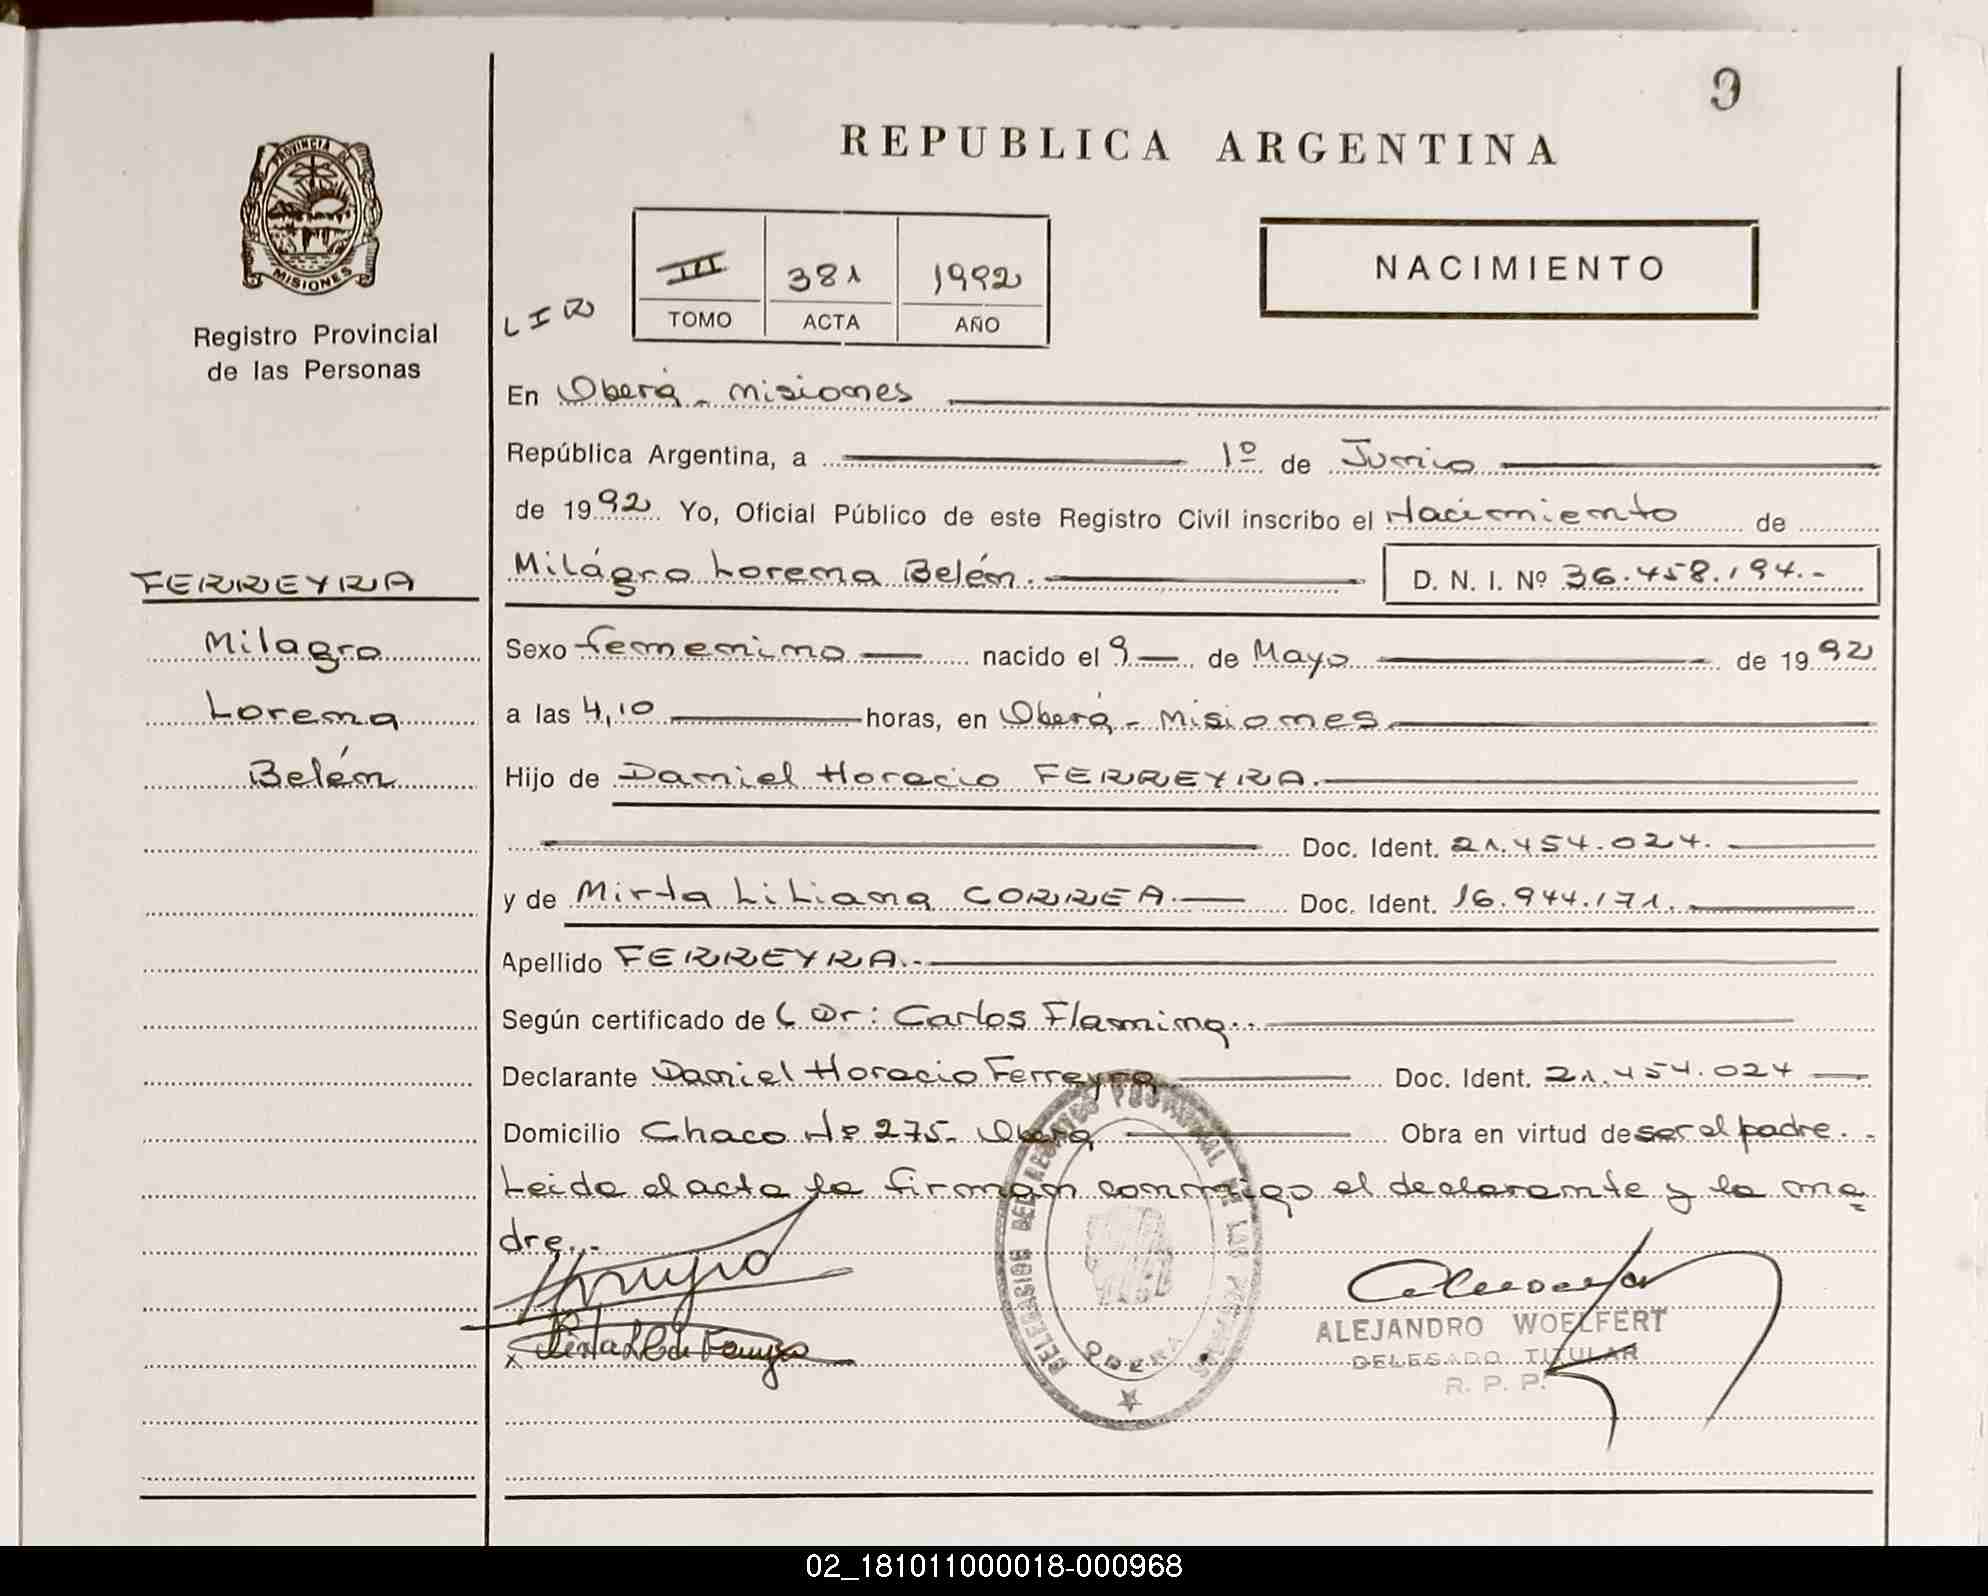 9
REPUBLICA ARGENTINA
PROVINCIA DE
MISIONES
Registro Provincial
de las Personas
III 381 1992
TOMO ACTA AÑO
NACIMIENTO
En Oberá - Misiones
República Argentina, a 1º de Junio
de 1992 Yo, Oficial Público de este Registro Civil inscribo el Nacimiento de
Milágro Lorena Belén.
D. N. I. Nº 36.458.194.-
FERREYRA
Milagro
Lorena
Belén
Sexo femenino nacido el 9 de Mayo de 1992
a las 4,10 horas, en Oberá - Misiones
Hijo de Daniel Horacio FERREYRA.
Doc. Ident. 21.454.024.
y de Mirta Liliana CORREA. Doc. Ident. 16.944.171.
Apellido FERREYRA.-
Según certificado de Dr: Carlos Flaming.-
Declarante Daniel Horacio Ferreyra Doc. Ident. 21.454.024
Domicilio Chaco Nº 275- Oberá Obra en virtud de ser el padre.-
Leida el acta la firman conmigo el declarante y la ma
dre.-
DELEGACION DEL REGISTRO PROVINCIAL DE LAS PERSONAS
OBERA
ALEJANDRO WOELFERT
DELEGADO TITULAR
R. P. P.
02_181011000018-000968